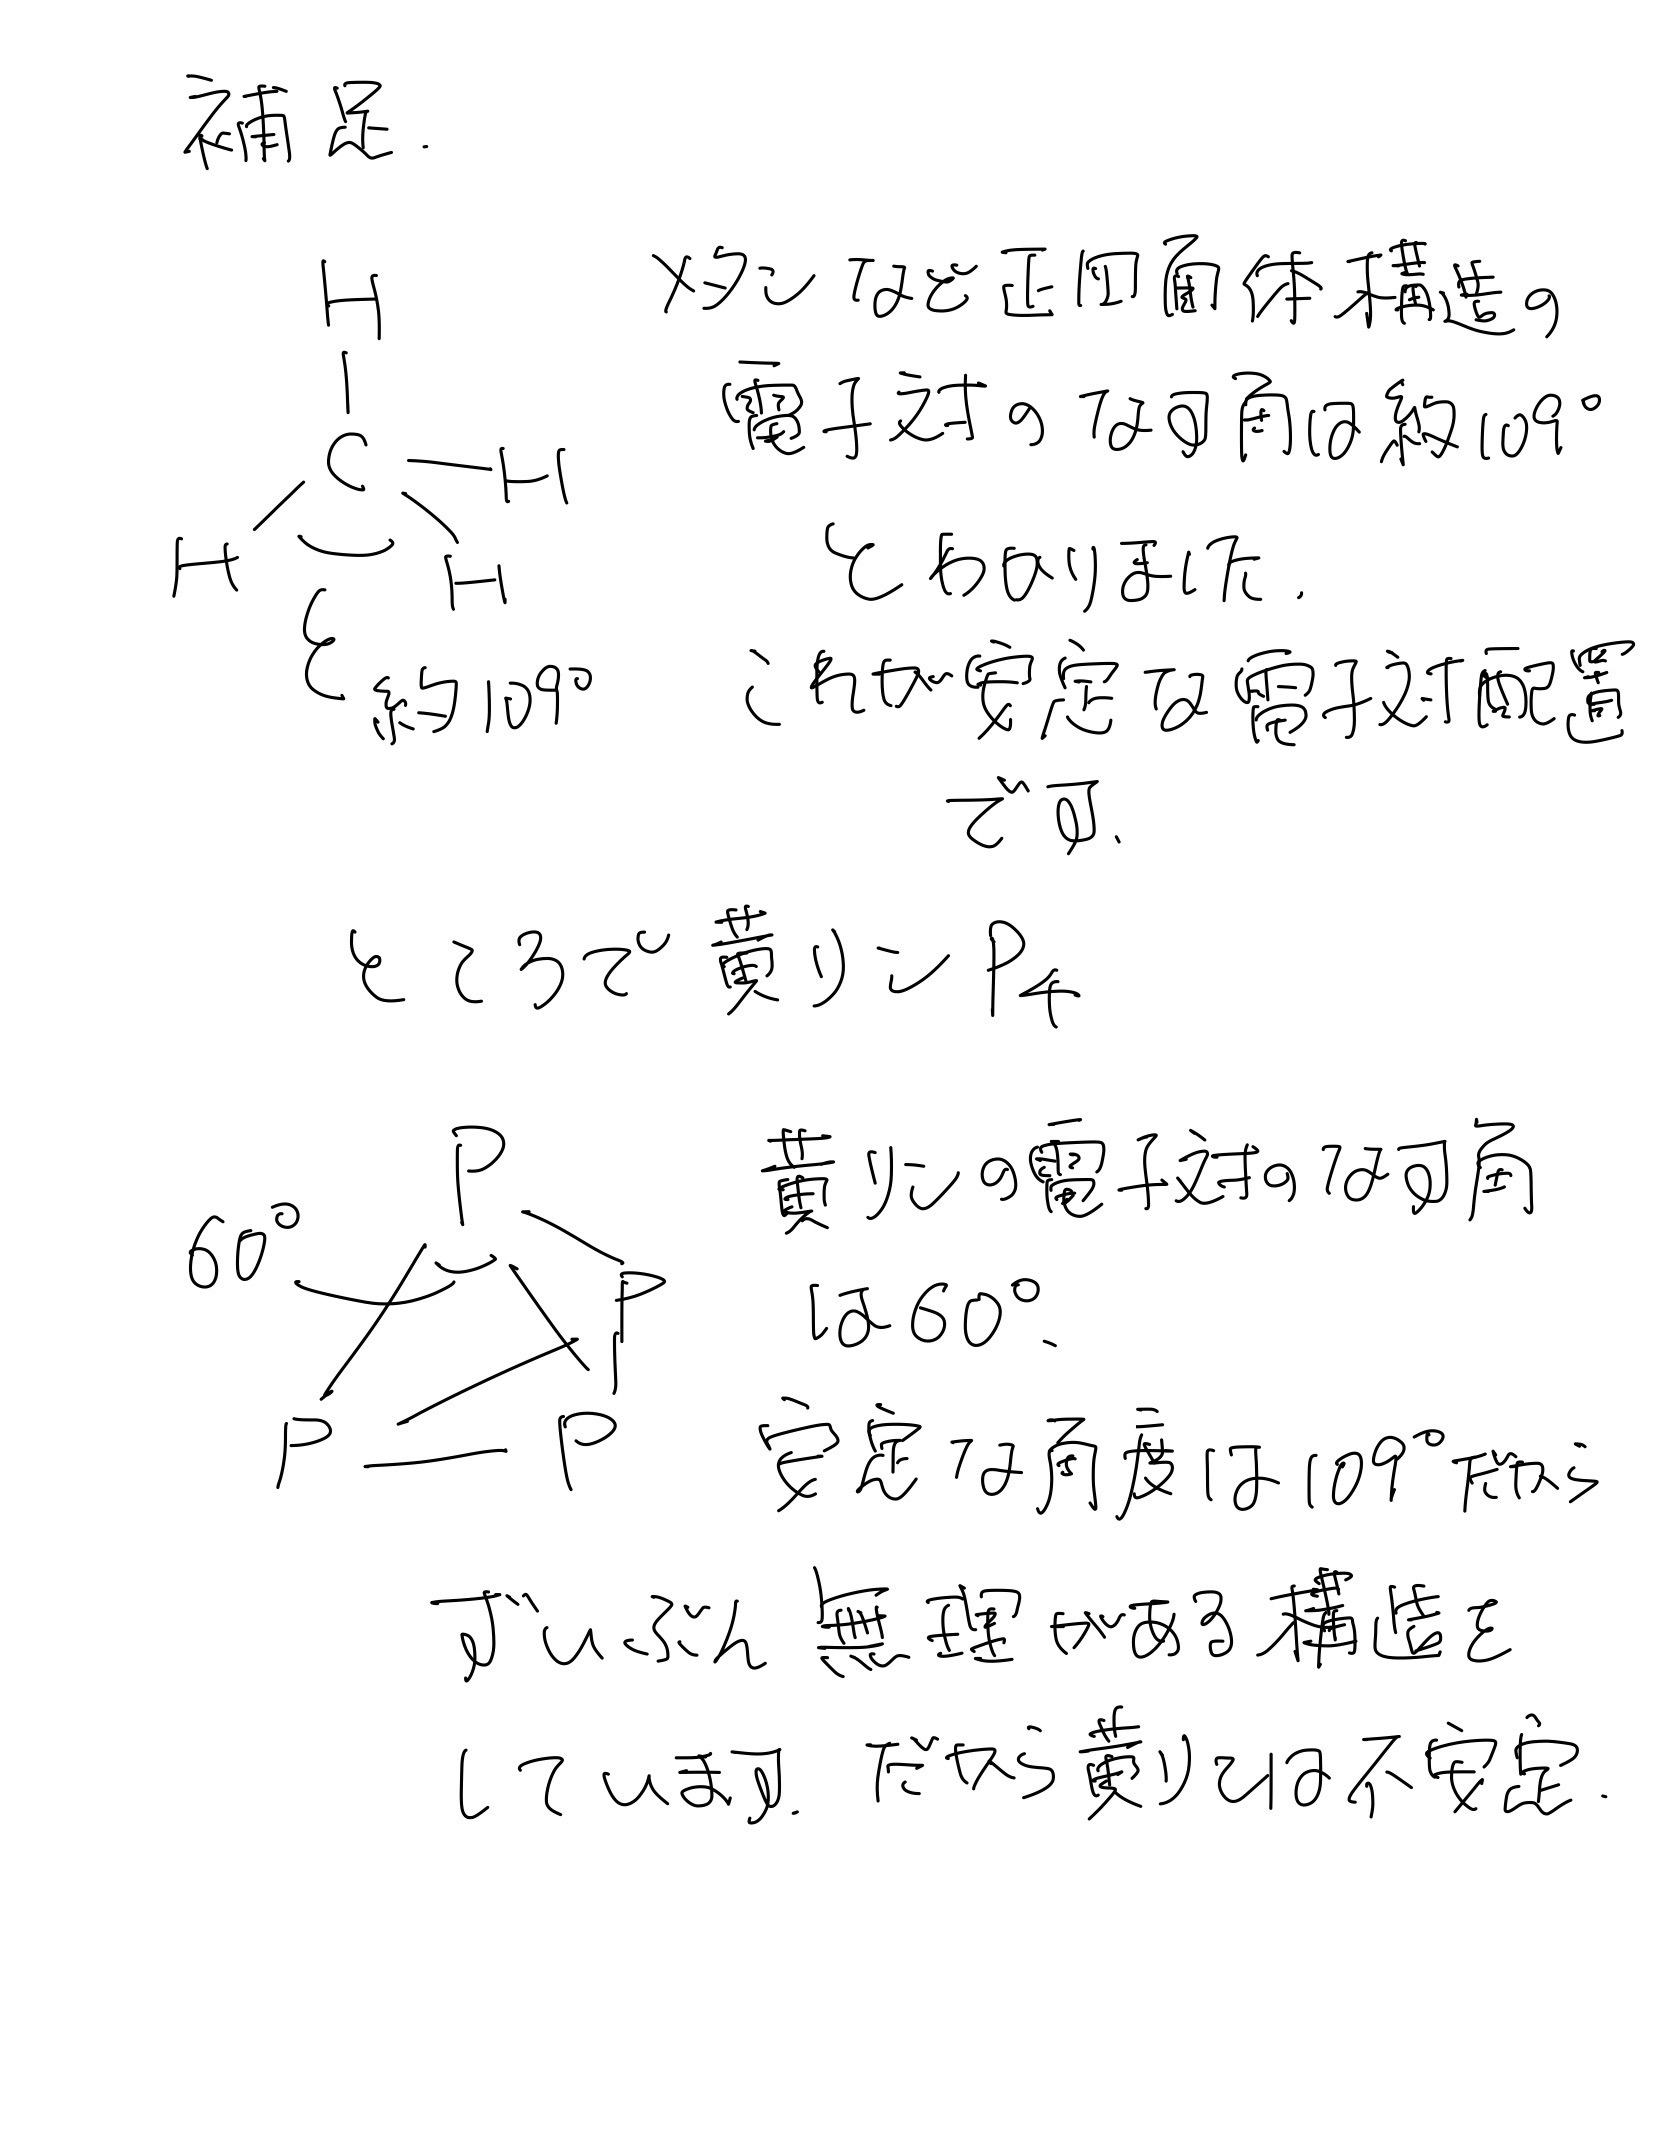 補足.
メタンなど正四面体構造の
電子対のなす角は約109°
とわかりました.
これが安定な電子対配置
です.
H
C
H
H
H
約109°
ところで黄リンP4
P
60°
P
P
P
黄リンの電子対のなす角
は60°、
安定な角度は109°だから
ずいぶん無理がある構造を
しています. だから黄リンは不安定.